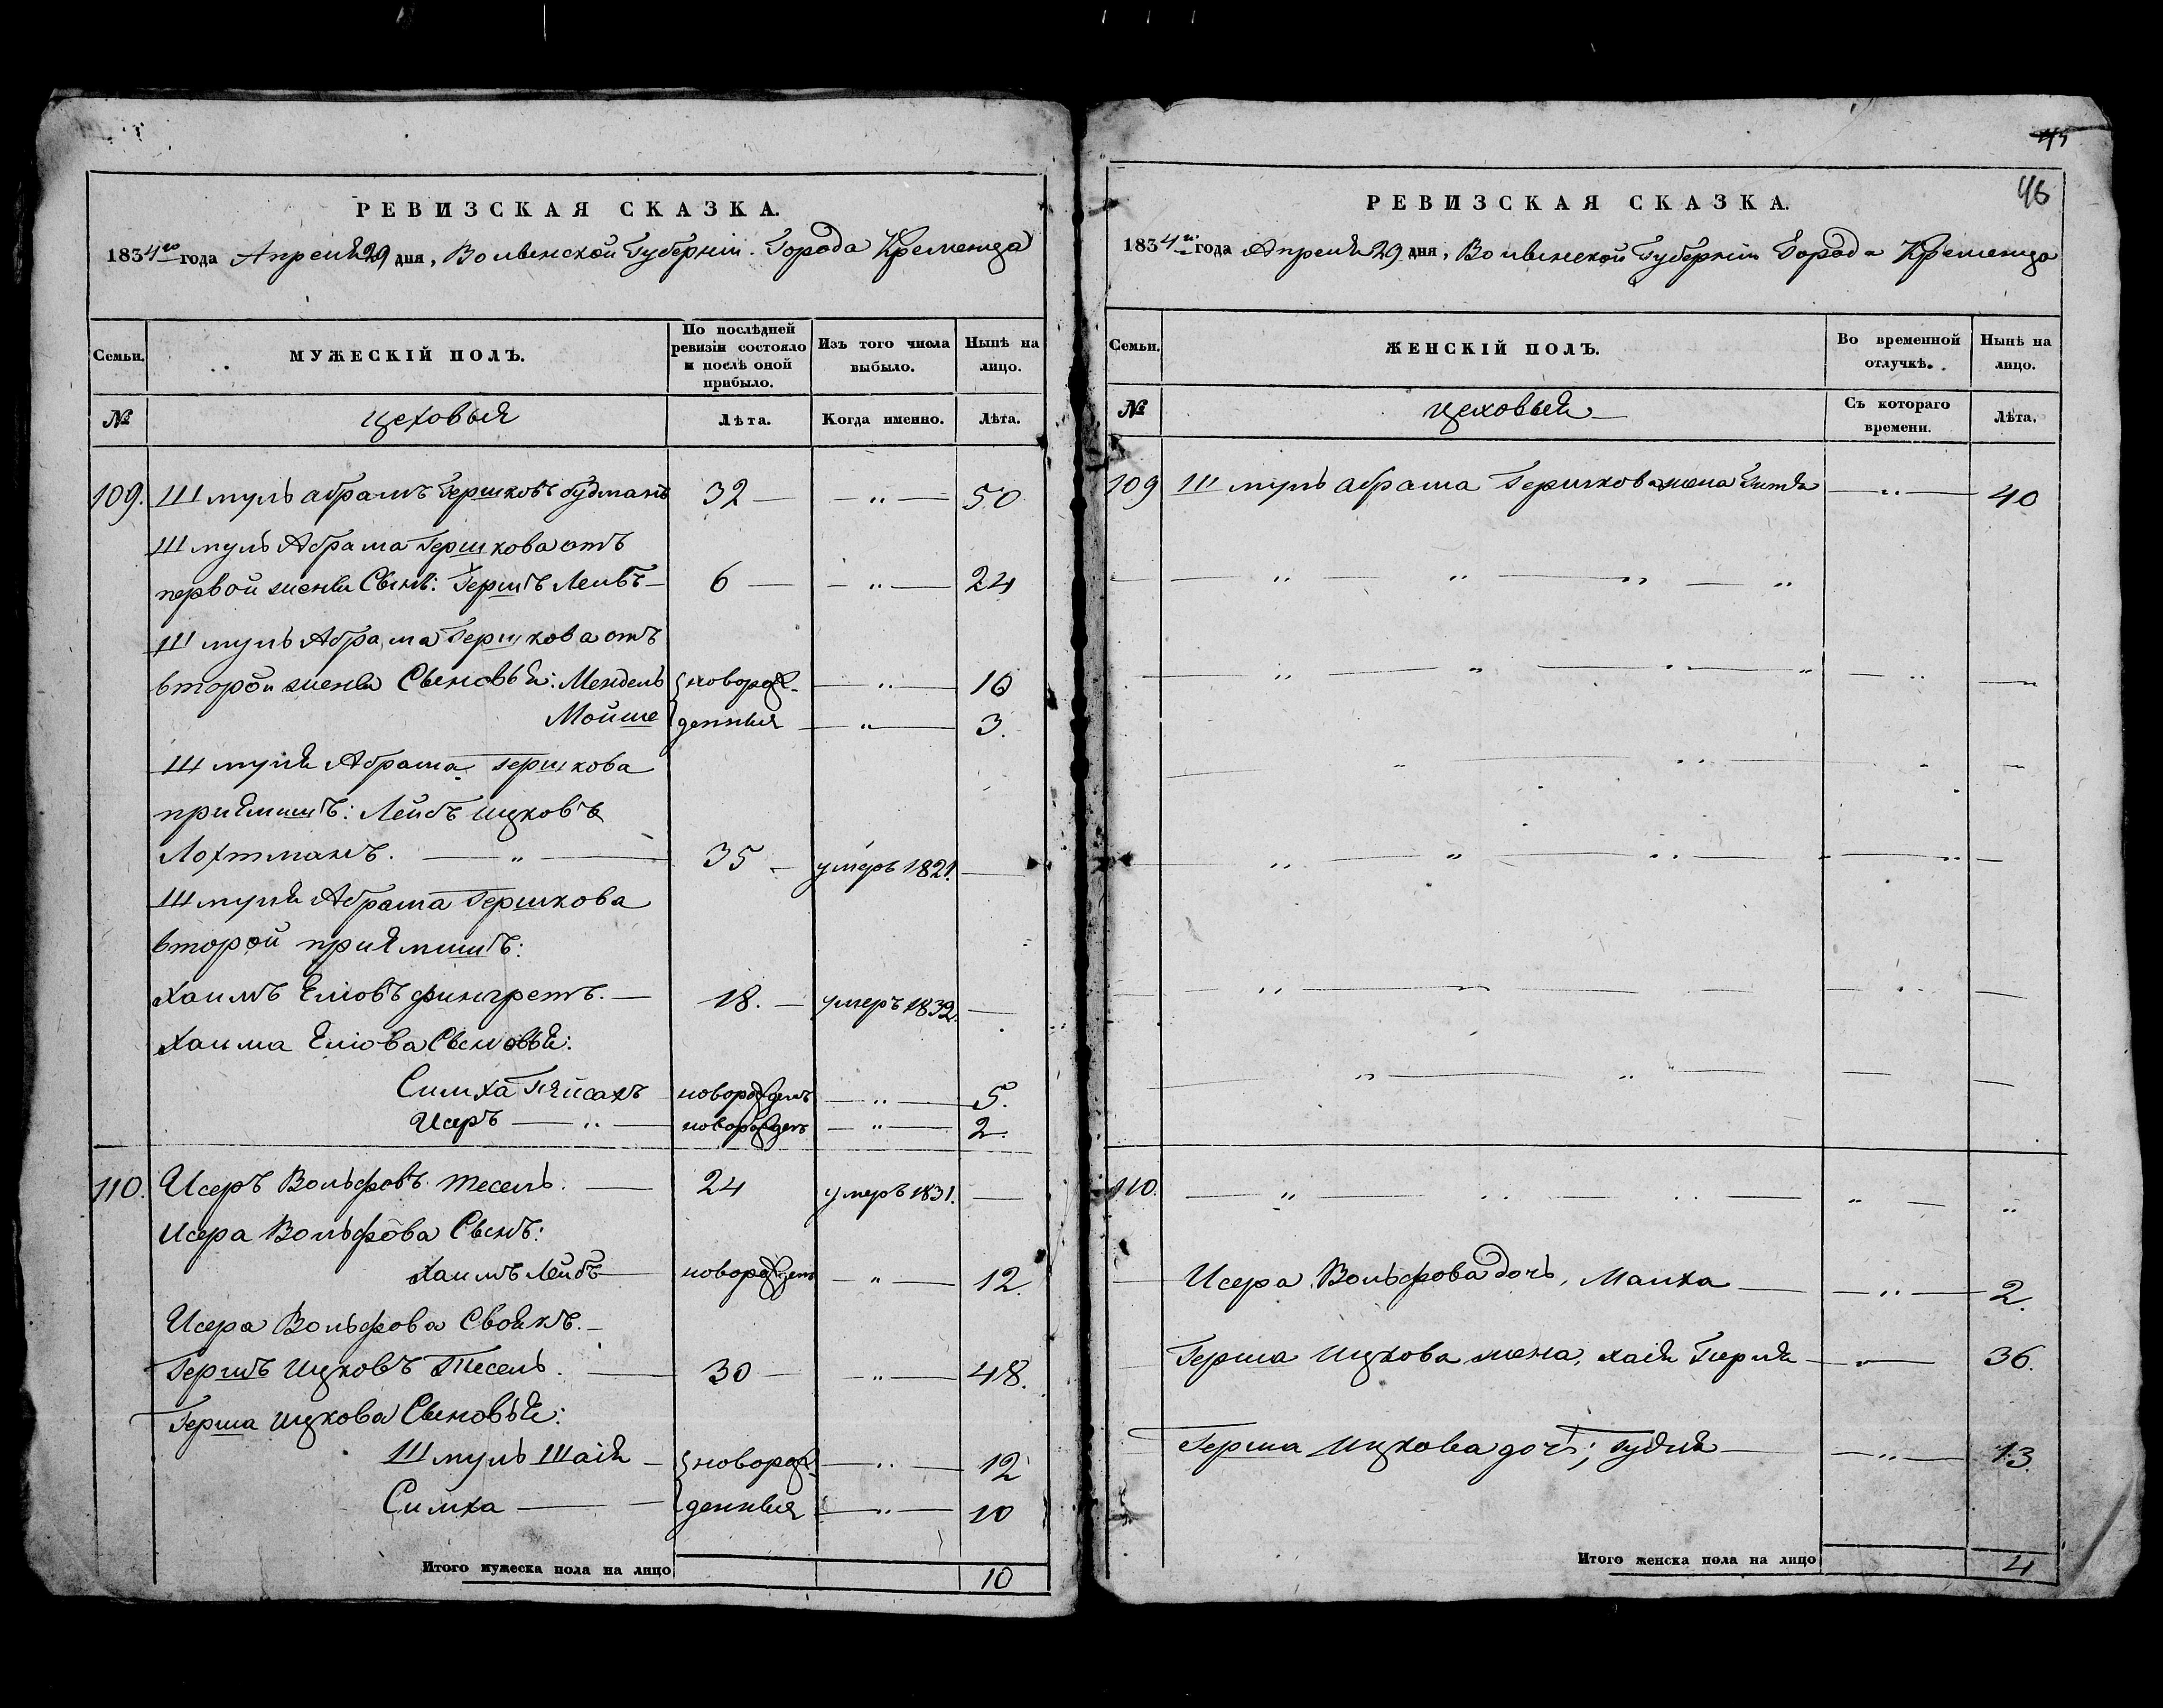 РЕВИЗСКАЯ СКАЗКА.
1834го года Апреля 29 дня, Волынской Губернiи. Города Кременца
Семьи.
МУЖЕСКIЙ ПОЛЪ.
По послѣдней ревизiи состояло и послѣ оной прибыло.
Изъ того числа выбыло.
Нынѣ на лицо.
№
цеховыя
Лѣта.
Когда именно.
Лѣта.
109. Шмуль абрамъ Гершковъ Гудманъ 32 — — „ — 50
Шмуль Абрама Гершкова отъ
первой жены Сынъ: Гершъ Лейбъ — 6 — — „ — 24
Шмуль Абрама Гершкова отъ
второй жены Сыновья: Мендель новорож- — „ — 16
Мойше денныя — „ — 3.
Шмуля Абрама Гершкова
прiямышъ: Лейбъ Ицковъ
Лохтманъ. — „ — 35 — умеръ 1821. —
Шмуля Абрама Гершкова
второй прiямышъ:
Хаимъ Елiовъ фингретъ. — 18. — умеръ 1832. —
Хаима Елiова Сыновья:
Симха Пейсахъ новорожденъ — „ — 5.
Исеръ — „ — новорожденъ — „ — 2.
110. Исеръ Вольфовъ Тесель. — 24 умеръ 1831. —
Исера Вольфова Сынъ:
Хаимъ Лейбъ новорожденъ — „ — 12.
Исера Вольфова Своякъ. —
Гершъ Ицковъ Тесель. — 30 — — „ — 48.
Герша Ицкова Сыновья:
Шмуль Шаiя — новорож- — „ — 12
Симха — — денныя — „ — 10
Итого мужеска пола на лицо 10
45
46
РЕВИЗСКАЯ СКАЗКА.
1834го года Апреля 29 дня, Волынской Губернiи Города Кременца
Семьи.
ЖЕНСКIЙ ПОЛЪ.
Во временной отлучкѣ.
Нынѣ на лицо.
№
цеховыя —
Съ котораго времени.
Лѣта.
109 Шмуль абрама Гершкова жена Гитля — „ — 40
110. — „ — „ — „ — „ — „
Исера Вольфова дочь, Малка — — „ — 2.
Герша Ицкова жена, хаiя Перля — „ — 36.
Герша Ицкова дочь; Гудля — — „ — 13.
Итого женска пола на лицо 4